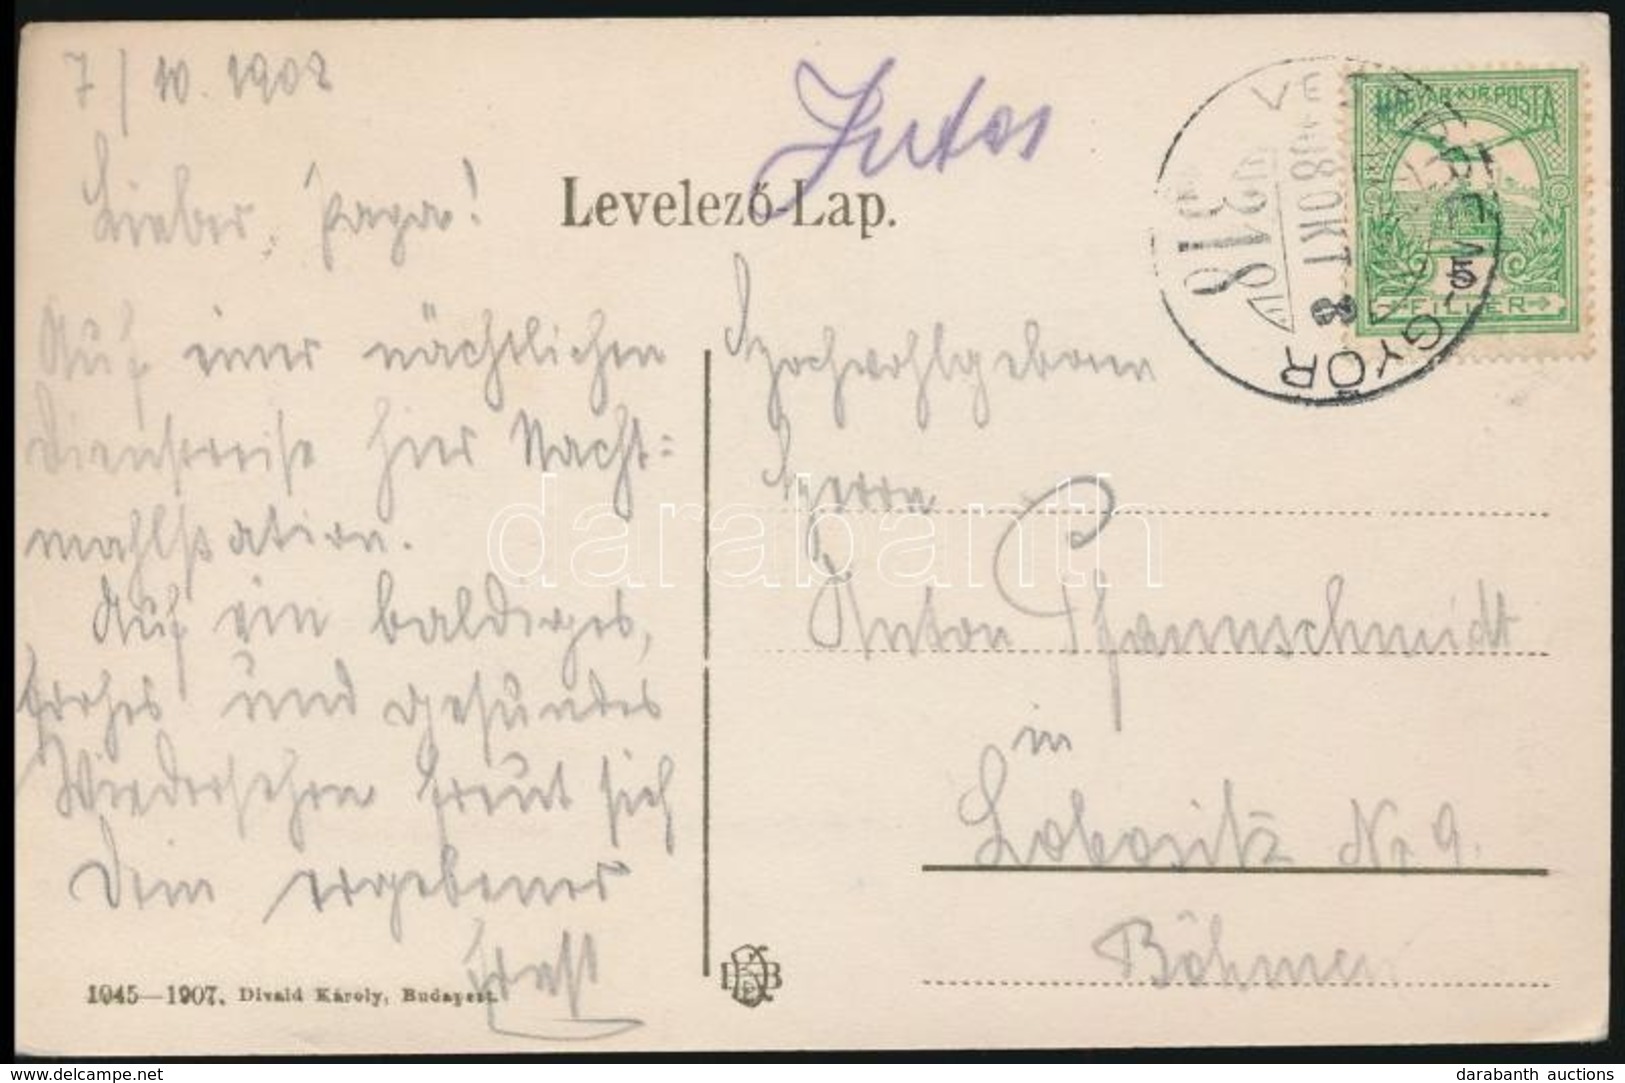 7/10. 1908
Jutas
Levelező-Lap.
MAGYAR·KIR·POSTA
FILLÉR
5
908 OKT 8
318
GYŐR
Lieber Papa!
Auf einer nächtlichen
Dienstreise hier Nacht=
mahlstation.
Auf ein baldiges,
frohes und gesundes
Wiedersehen freut sich
Dein ergebener
Hochwohlgeboren
Herrn
Anton Pfannschmidt
in
Lobositz Nr 9.
Böhmen
1045—1907. Divald Károly, Budapest.
darabanth
delcampe.net
darabanth auctions